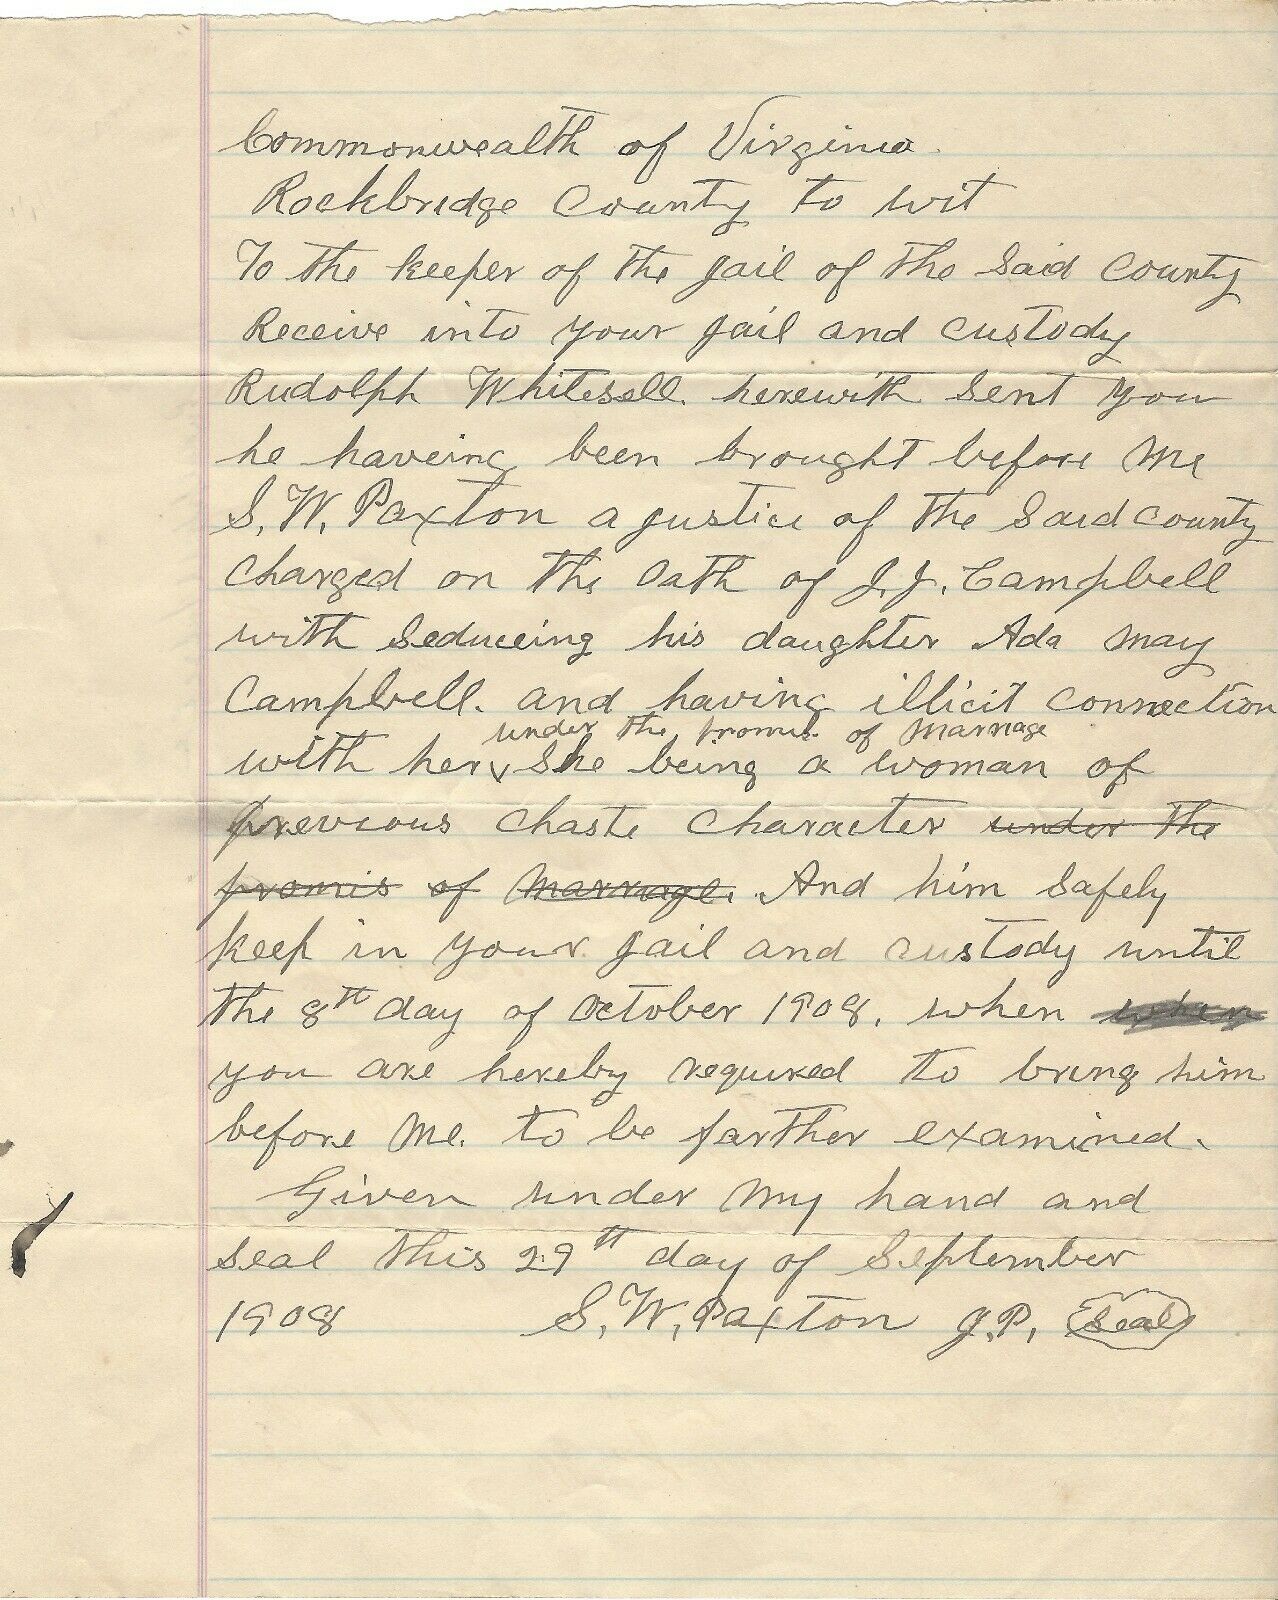 Commonwealth of Virginia.
Rockbridge County to wit
To the keeper of the jail of the Said County
Receive into your jail and custody
Rudolph Whitesell. herewith Sent you
he haveing been brought before Me
S. W. Paxton a justice of the Said County
Charged on the Oath of J. J. Campbell
with Seduceing his daughter Ada May
Campbell. and having illicit Connection
under the promis of Marriage
with her, She being a woman of
previous chaste character under the
promis of Marriage. And him Safely
keep in your jail and custody until
the 8th day of October 1908. when when
you are hereby required to bring him
before Me. to be farther examined.
Given under My hand and
seal this 29th day of September
1908 S. W. Paxton J.P. Seal